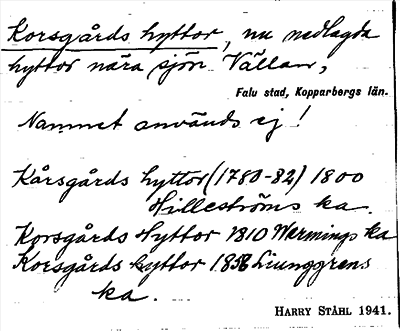 Korsgårds hyttor, nu nedlagda
hyttor nära sjön Vällan,
Falu stad, Kopparbergs län.
Namnet används ej!
Kårsgårds hyttor (1780-82) 1800
Hilleströms ka.
Korsgårds Hyttor 1810 Wermings ka
Korsgårds hyttor 1856 Liunggrens
ka.
HARRY STÅHL 1941.